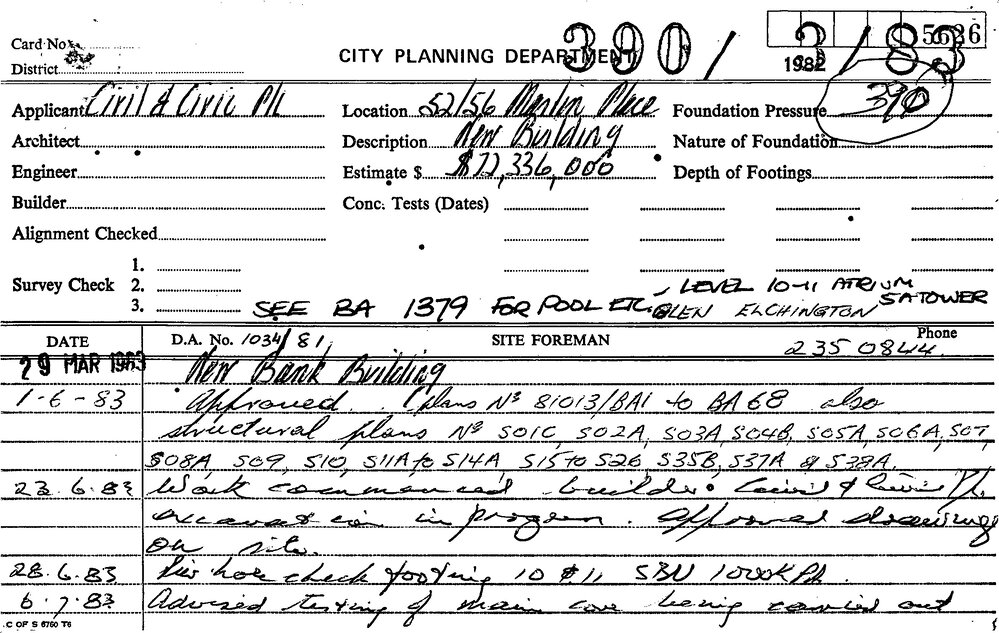 390/3/83
5626
Card No.
CITY PLANNING DEPARTMENT
1982
District
Applicant Civil & Civic P/L
Location 52/56 Martin Place
Foundation Pressure
390
Architect
Description New Building
Nature of Foundation
Engineer
Estimate $ $72,336,000
Depth of Footings
Builder
Conc. Tests (Dates)
Alignment Checked
Survey Check 1.
2.
3.
SEE BA 1379 FOR POOL ETC, LEVEL 10-11 ATRIUM
GLEN ELCHINGTON SATOWER
DATE
D.A. No. 1034/81,
SITE FOREMAN
Phone
235 0844
29 MAR 1983 New Bank Building
1-6-83 Approved. plans Nº 81013/BA1 to BA68 also
structural plans Nº S01C, S02A, S03A, S04B, S05A, S06A, S07,
S08A, S09, S10, S11A to S14A, S15 to S26, S35B, S37A & S38A.
23.6.83 Work commenced builder Civil & Civic P/L
excavation in progress. Approved drawings
on site.
28.6.83 Pier hole check footing 10 & 11 SBU 1000KPA.
6.7.83 Advised testing of main core being carried out
.C OF S 6760 T6